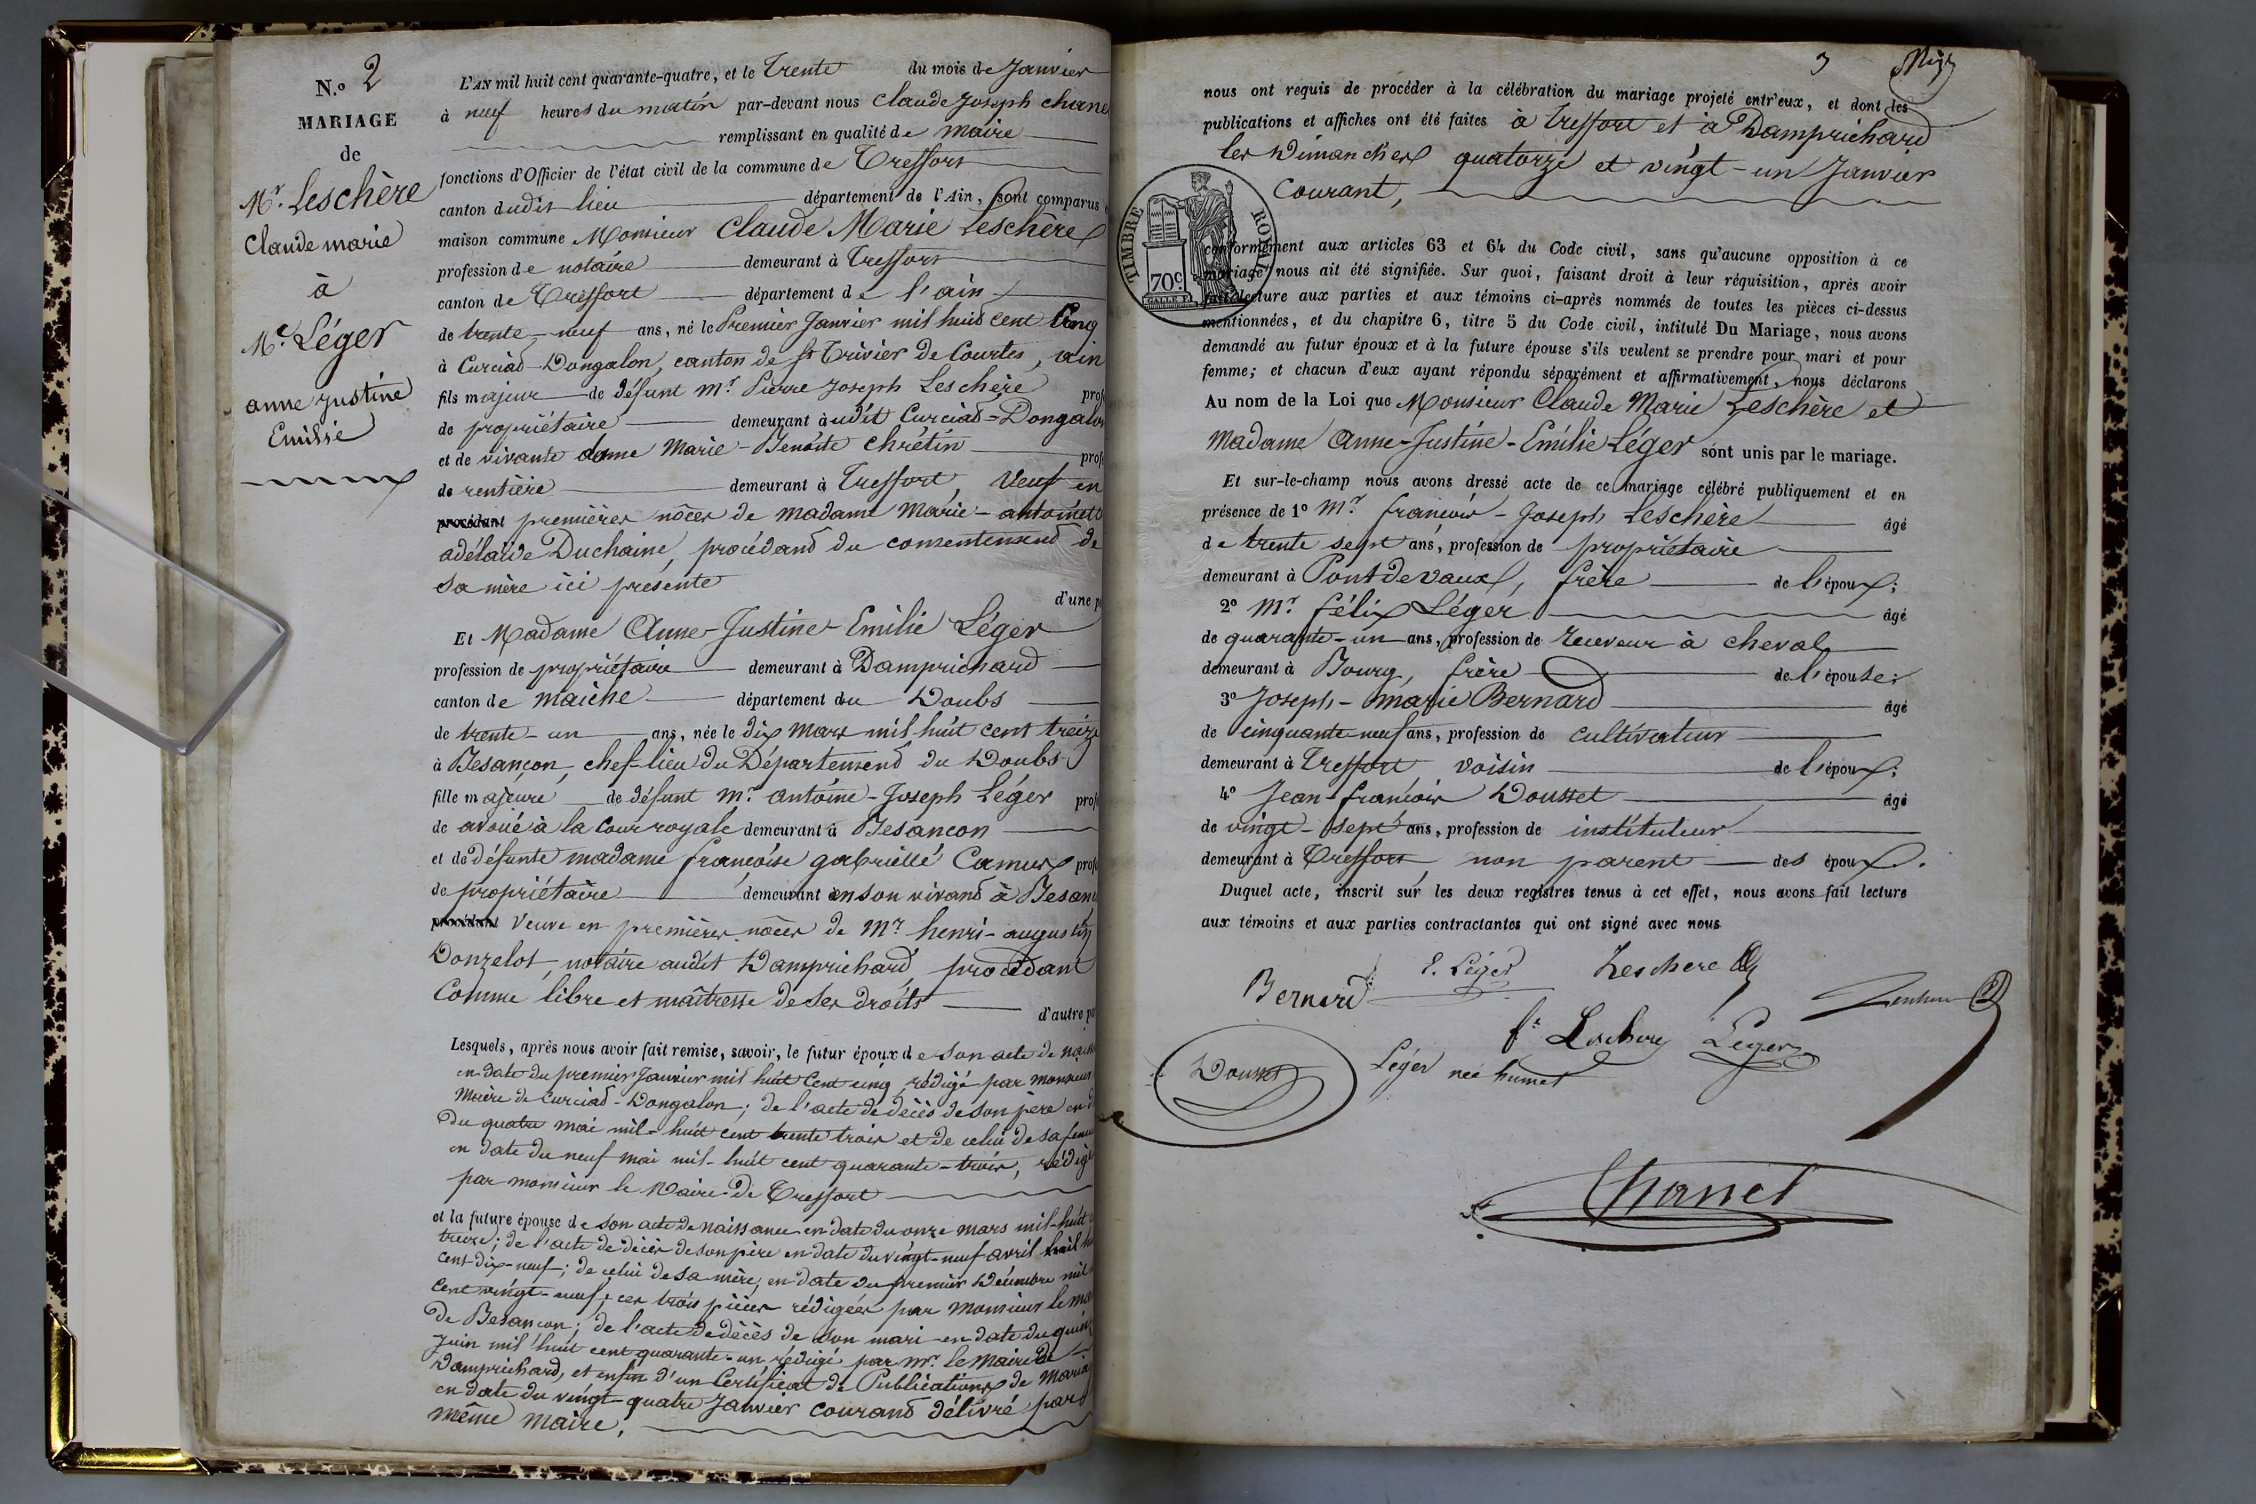 N.o 2
MARIAGE
de
Mr. Leschère
Claude marie
à
Me. Léger
anne justine
Emilie
L'AN mil huit cent quarante-quatre, et le Trente du mois de Janvier
à neuf heures du matin par-devant nous Claude Joseph Chanel
remplissant en qualité de maire
fonctions d'Officier de l'état civil de la commune de Treffort
canton dudit lieu département de l'Ain, sont comparus
maison commune Monsieur Claude Marie Leschère
profession de notaire demeurant à Treffort
canton de Treffort département de l'ain
de trente-neuf ans, né le Premier Janvier mil huit cent Cinq
à Curciad-Dongalon, canton de St Trivier de Courtes, ain
fils majeur de défunt mr. Pierre Joseph Leschère prof
de propriétaire demeurant audit Curciad-Dongalon
et de vivante dame Marie-Benoîte Chrétin prof
de rentière demeurant à Treffort, Veuf en
procédant premières nôces de madame Marie-antoinette
adélaïde Duchaine, procédand du consentement de
sa mère ici présente
d'une p
Et Madame Anne-Justine-Emilie Léger
profession de propriétaire demeurant à Damprichard
canton de maiche département du Doubs
de trente-un ans, née le dix Mars mil huit cent treize
à Besançon, chef-lieu du Département du Doubs
fille majeure de défunt mr. antoine-Joseph Léger prof
de avoué à la Cour royale demeurant à Besançon
et de défunte madame françoise gabrielle Camus prof
de propriétaire demeurant en son vivand à Besan
procédant Veuve en premières nôces de Mr. henri-augustin
Donzelot, notaire audit Damprichard, procédant
Comme libre et maîtresse de ses droits
d'autre pa
Lesquels, après nous avoir fait remise, savoir, le futur époux de son acte de naiss
en date du premier Janvier mil huit Cent cinq rédigé par monsieur
Maire de Curciad-Dongalon; de l'acte de décès de son père en d
du quatre mai mil-huit cent trente trois et de celui de sa femme
en date du neuf mai mil-huit cent quarante-trois, rédigé
par monsieur le Maire de Treffort
et la future épouse de son acte de naissance en date du onze mars mil-huit
treize; de l'acte de décès de son père en date du vingt-neuf avril mil h
cent-dix-neuf; de celui de sa mère, en date du premier Décembre mil
Cent vingt-neuf; ces trois pièces rédigées par Monsieur le ma
de Besançon; de l'acte de décès de son mari en date du quin
Juin mil huit cent quarante-un rédigé par mr. le Maire de
Damprichard, et enfin d'un Certificat de Publications de Maria
en date du vingt-quatre Janvier courand délivré par
même maire.
3
nous ont requis de procéder à la célébration du mariage projeté entr'eux, et dont les
publications et affiches ont été faites à Treffort et à Damprichard
les Dimanches quatorze et vingt-un Janvier
Courant,
TIMBRE ROYAL
70c.
conformément aux articles 63 et 64 du Code civil, sans qu'aucune opposition à ce
mariage nous ait été signifiée. Sur quoi, faisant droit à leur réquisition, après avoir
fait lecture aux parties et aux témoins ci-après nommés de toutes les pièces ci-dessus
mentionnées, et du chapitre 6, titre 5 du Code civil, intitulé Du Mariage, nous avons
demandé au futur époux et à la future épouse s'ils veulent se prendre pour mari et pour
femme; et chacun d'eux ayant répondu séparément et affirmativement, nous déclarons
Au nom de la Loi que Monsieur Claude Marie Leschère et
Madame Anne-Justine-Emilie Léger sont unis par le mariage.
Et sur-le-champ nous avons dressé acte de ce mariage célébré publiquement et en
présence de 1o mr. françois-Joseph Leschère âgé
de trente sept ans, profession de propriétaire
demeurant à Pont de vaux, frère de l'époux;
2o mr. félix Léger âgé
de quarante-un ans, profession de receveur à cheval
demeurant à Bourg, frère de l'épouse;
3o Joseph-marie Bernard âgé
de cinquante-neuf ans, profession de cultivateur
demeurant à Treffort, voisin de l'époux;
4o Jean-françois Dousset âgé
de vingt-sept ans, profession de instituteur
demeurant à Treffort non parent des époux.
Duquel acte, inscrit sur les deux registres tenus à cet effet, nous avons fait lecture
aux témoins et aux parties contractantes qui ont signé avec nous
Bernard E. Léger Leschere
fs Leschere Léger
Dousset Léger née humet
Chanel